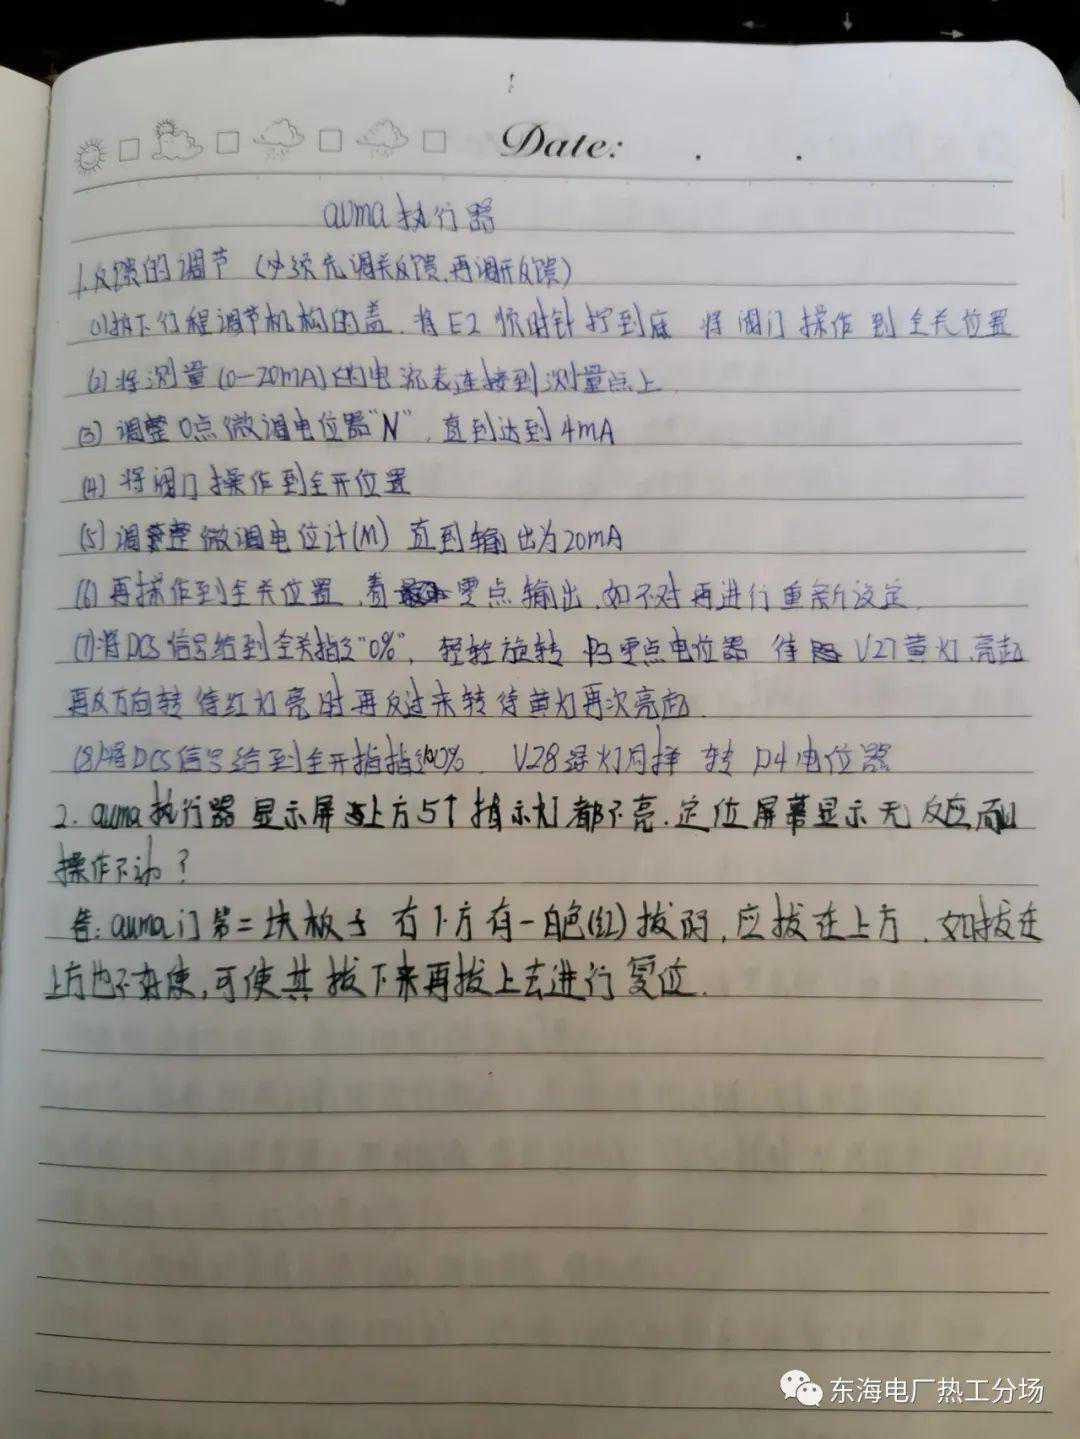 Date:
auma执行器
1.反馈的调节（必须先调关反馈,再调开反馈）
(1)拍下行程调节机构的盖.将E2顺时针拧到底 将阀门操作到全关位置
(2)将测量(0-20mA)的电流表连接到测量点上.
(3)调整0点微调电位器"N",直到达到4mA
(4)将阀门操作到全开位置
(5)调整微调电位计(M)直到输出为20mA
(6)再操作到全关位置,看零点输出,如不对再进行重新设定.
(7)将DCS信号给到全关指令"0%",轻轻旋转P3零点电位器 待V27黄灯亮起
再反方向转待红灯亮时再反过来转待黄灯再次亮起.
(8)将DCS信号给到全开指指令100%.V28绿灯同样转P4电位器
2.auma执行器显示屏上方5个指示灯都不亮.定位屏幕显示无反应而且
操作不动?
答:auma门第二块板子右下方有一白色(红)拔码,应拔在上方,如拔在
上方也不好使,可使其拔下来再拔上去进行复位.
东海电厂热工分场